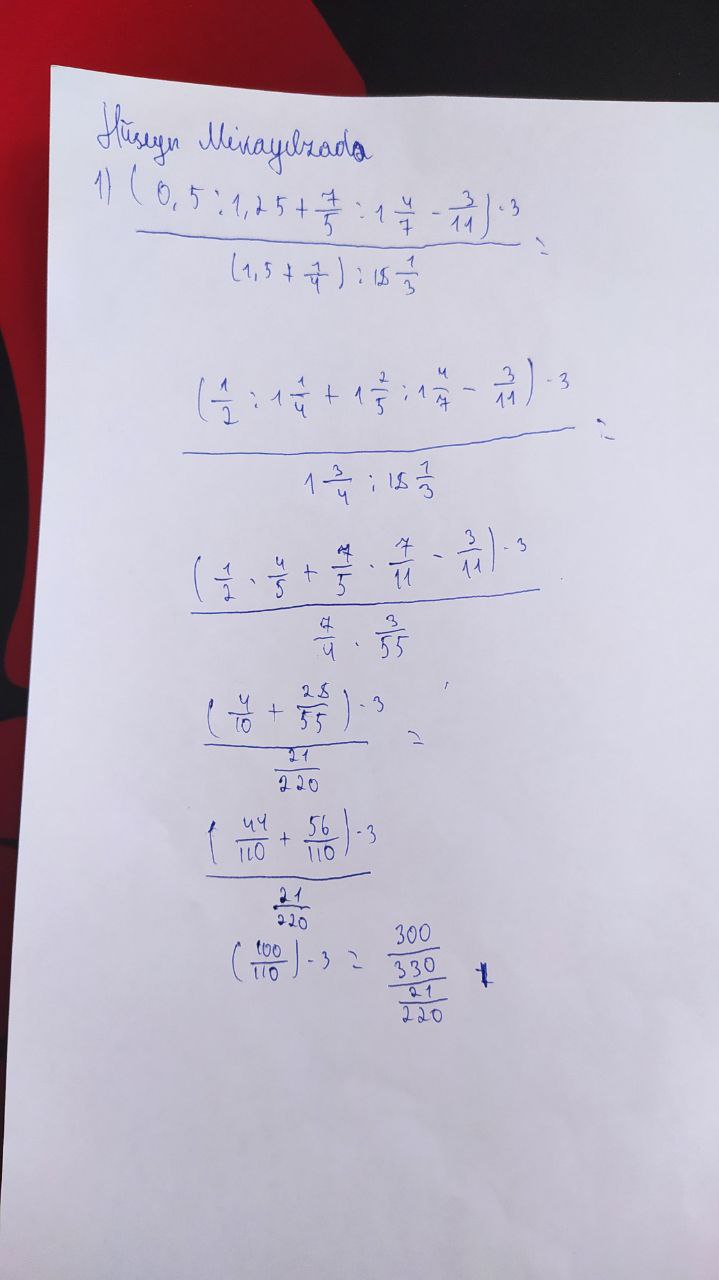 Hüseyn Mikayılzada
1) (0,5 : 1,25 + 7/5 : 1 4/7 - 3/11) · 3
(1,5 + 1/4) : 18 1/3 =
(1/2 : 1 1/4 + 1 2/5 : 1 4/7 - 3/11) · 3
1 3/4 : 18 1/3 =
(1/2 · 4/5 + 7/5 · 7/11 - 3/11) · 3
7/4 · 3/55
(4/10 + 28/55) · 3
21/220 =
(44/110 + 56/110) · 3
21/220
(100/110) · 3 = 300/330 / 21/220